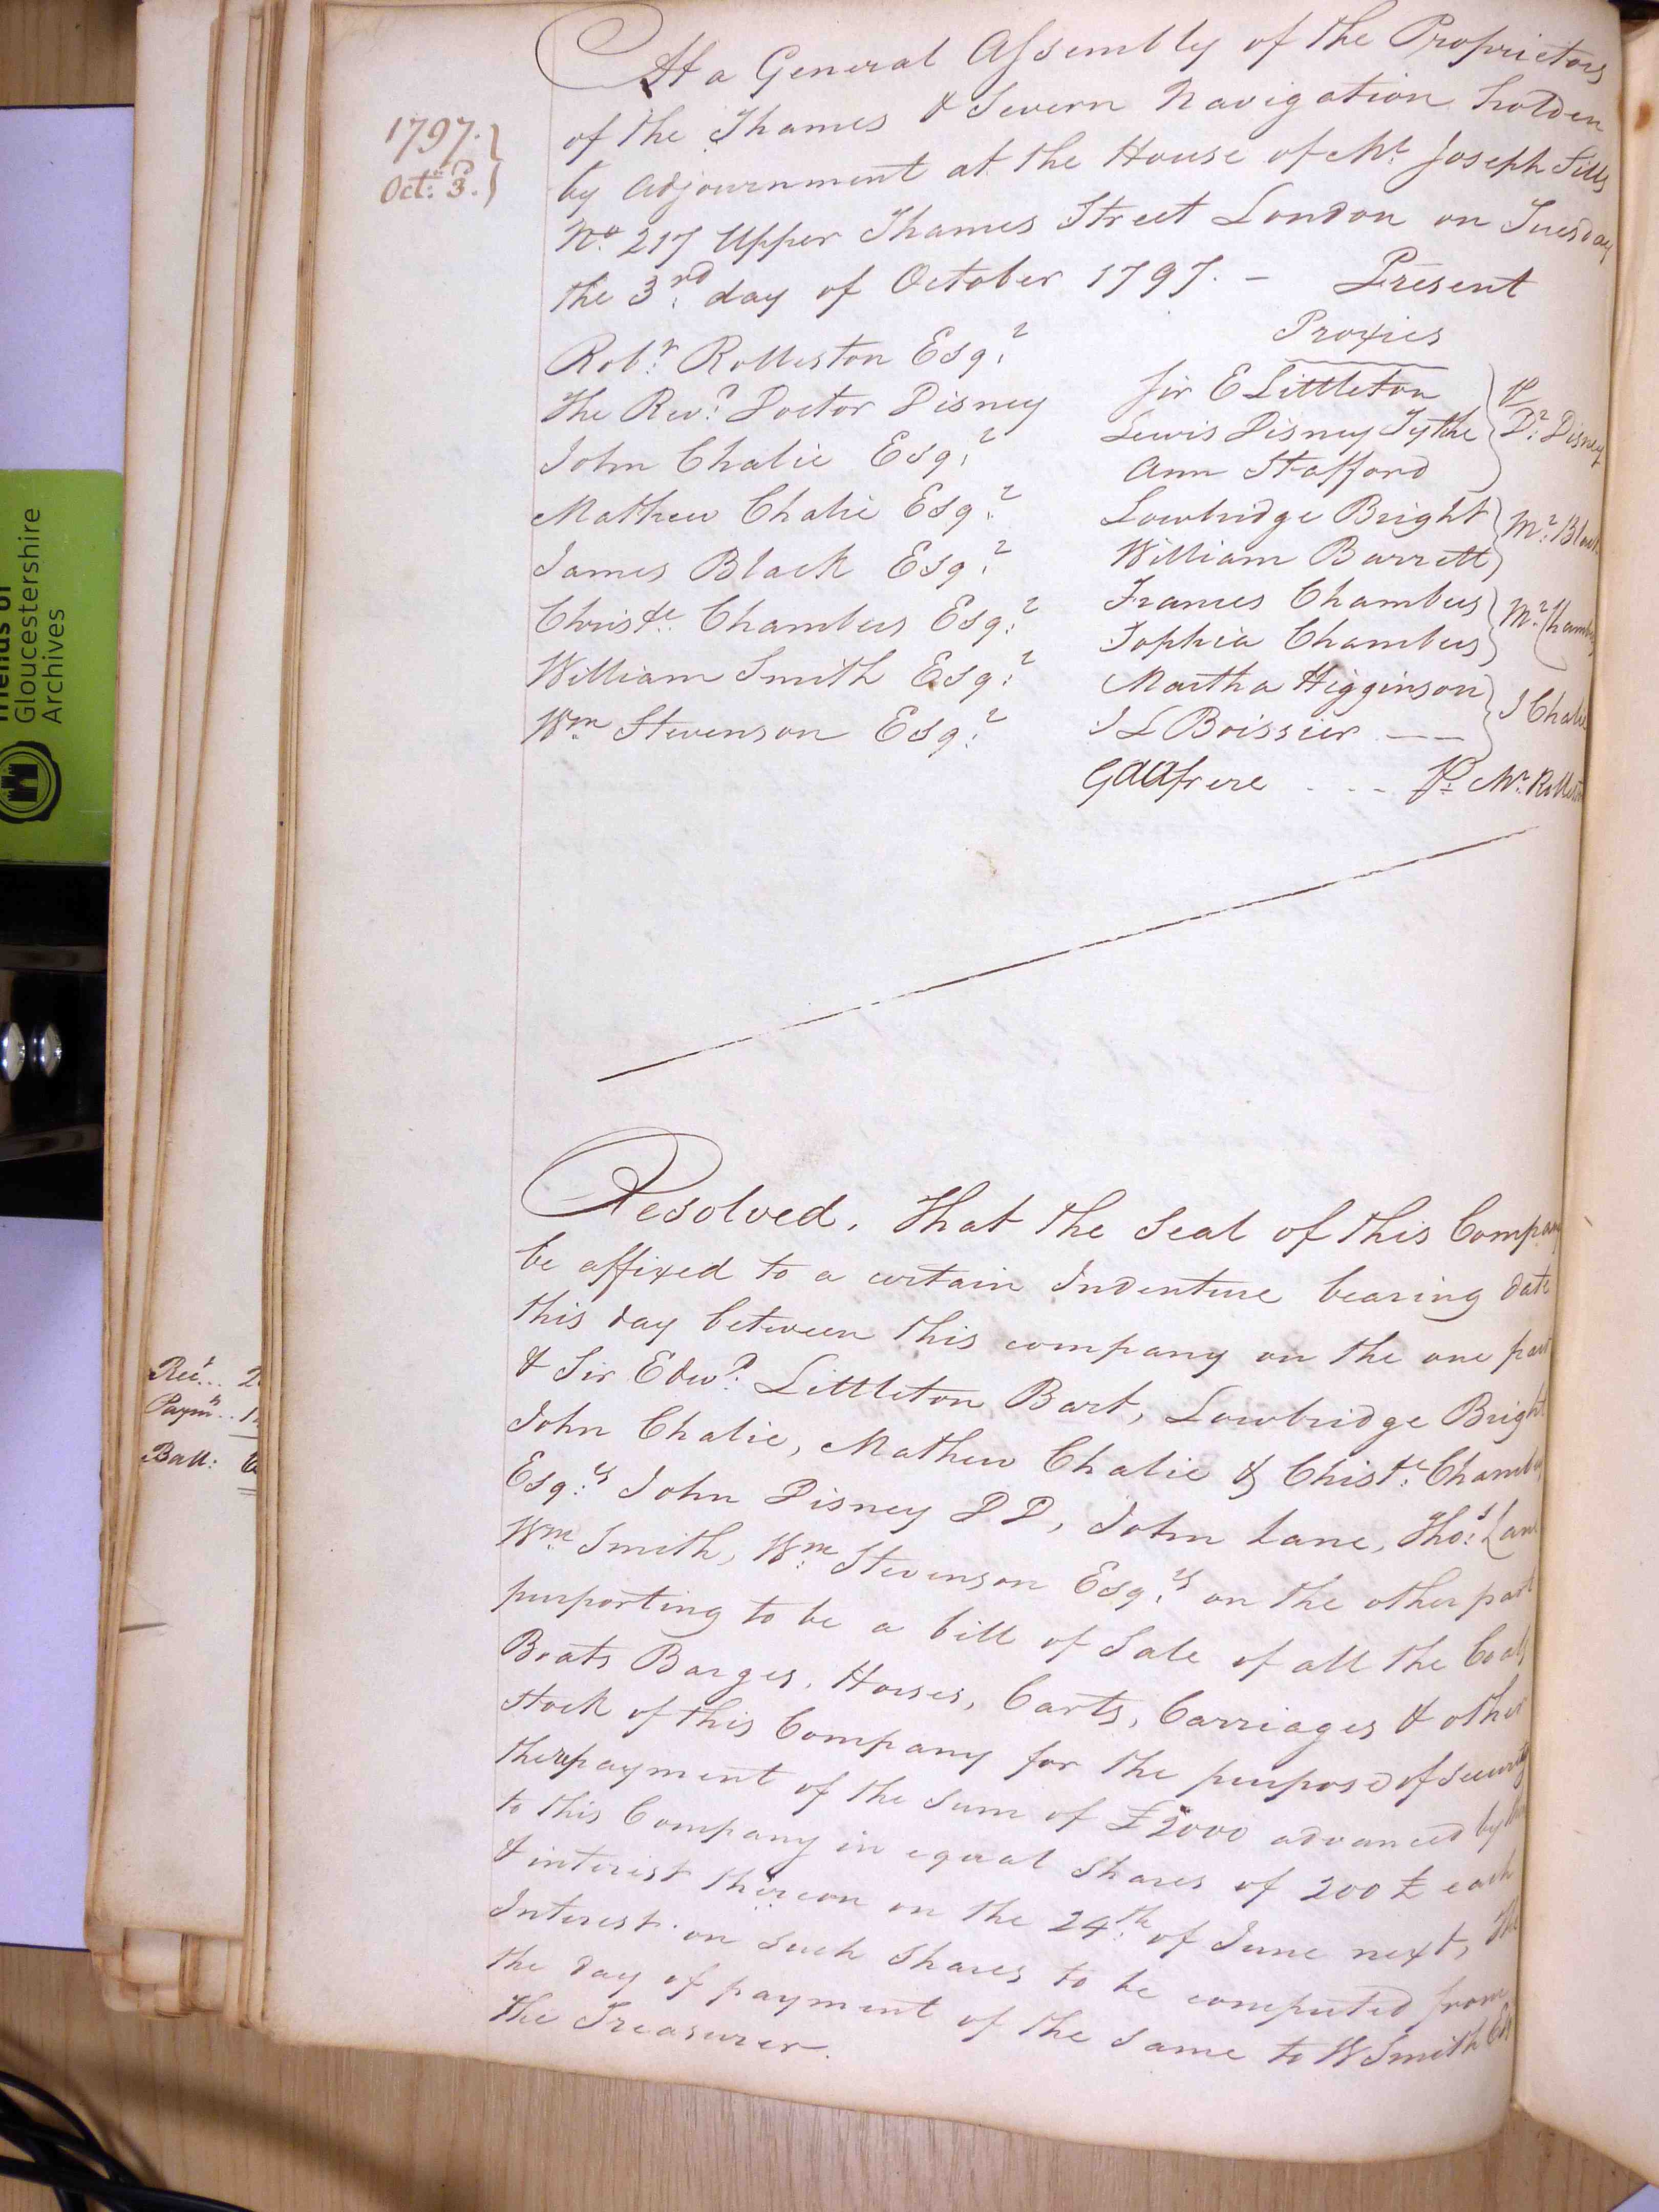 1797.
Octr. 3d.
At a General Assembly of the Proprietors
of the Thames & Severn Navigation holden
by adjournment at the House of Mr. Joseph Sills
No. 217 Upper Thames Street London on Tuesday
the 3rd. day of October 1797. — Present
Proxies
Robt. Rolleston Esqr.
The Revd. Doctor Disney
John Chalie Esqr.
Mathew Chalie Esqr.
James Black Esqr.
Christr. Chambers Esqr.
William Smith Esqr.
Wm Stevenson Esqr.
Sir E Littleton
Lewis Disney Fytche } P Dr. Disney
Ann Stafford
Lowbridge Bright } Mr. Black
William Barrett
Frances Chambers } Mr. Chambers
Sophia Chambers
Martha Higginson } J Chalie
J L Boissier — —
- - - P Mr. Rolleston
Resolved. That the Seal of this Company
be affixed to a certain Indenture bearing date
this day between this company on the one part
& Sir Edwd. Littleton Bart, Lowbridge Bright
John Chalie, Mathew Chalie & Christr. Chambers
Esqrs. John Disney DD, John Lane, Thos. Lane
Wm Smith, Wm. Stevenson Esqrs. on the other part
purporting to be a bill of Sale of all the Coals,
Boats Barges, Horses, Carts, Carriages & other
Stock of this Company for the purpose of securing
the repayment of the Sum of £2000 advanced by them
to this Company in equal Shares of 200£ each
& interest thereon on the 24th. of June next, the
Interest on such Shares to be computed from
the day of payment of the same to W Smith Esqr
the Treasurer.
Rect... 2
Paymts.. 1
Ball:
Friends of
Gloucestershire
Archives